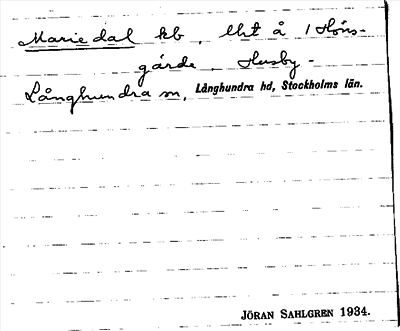 Mariedal kb, lht å 1 Höns-
gärde, Husby-
Långhundra sn, Långhundra hd, Stockholms län.
JÖRAN SAHLGREN 1934.